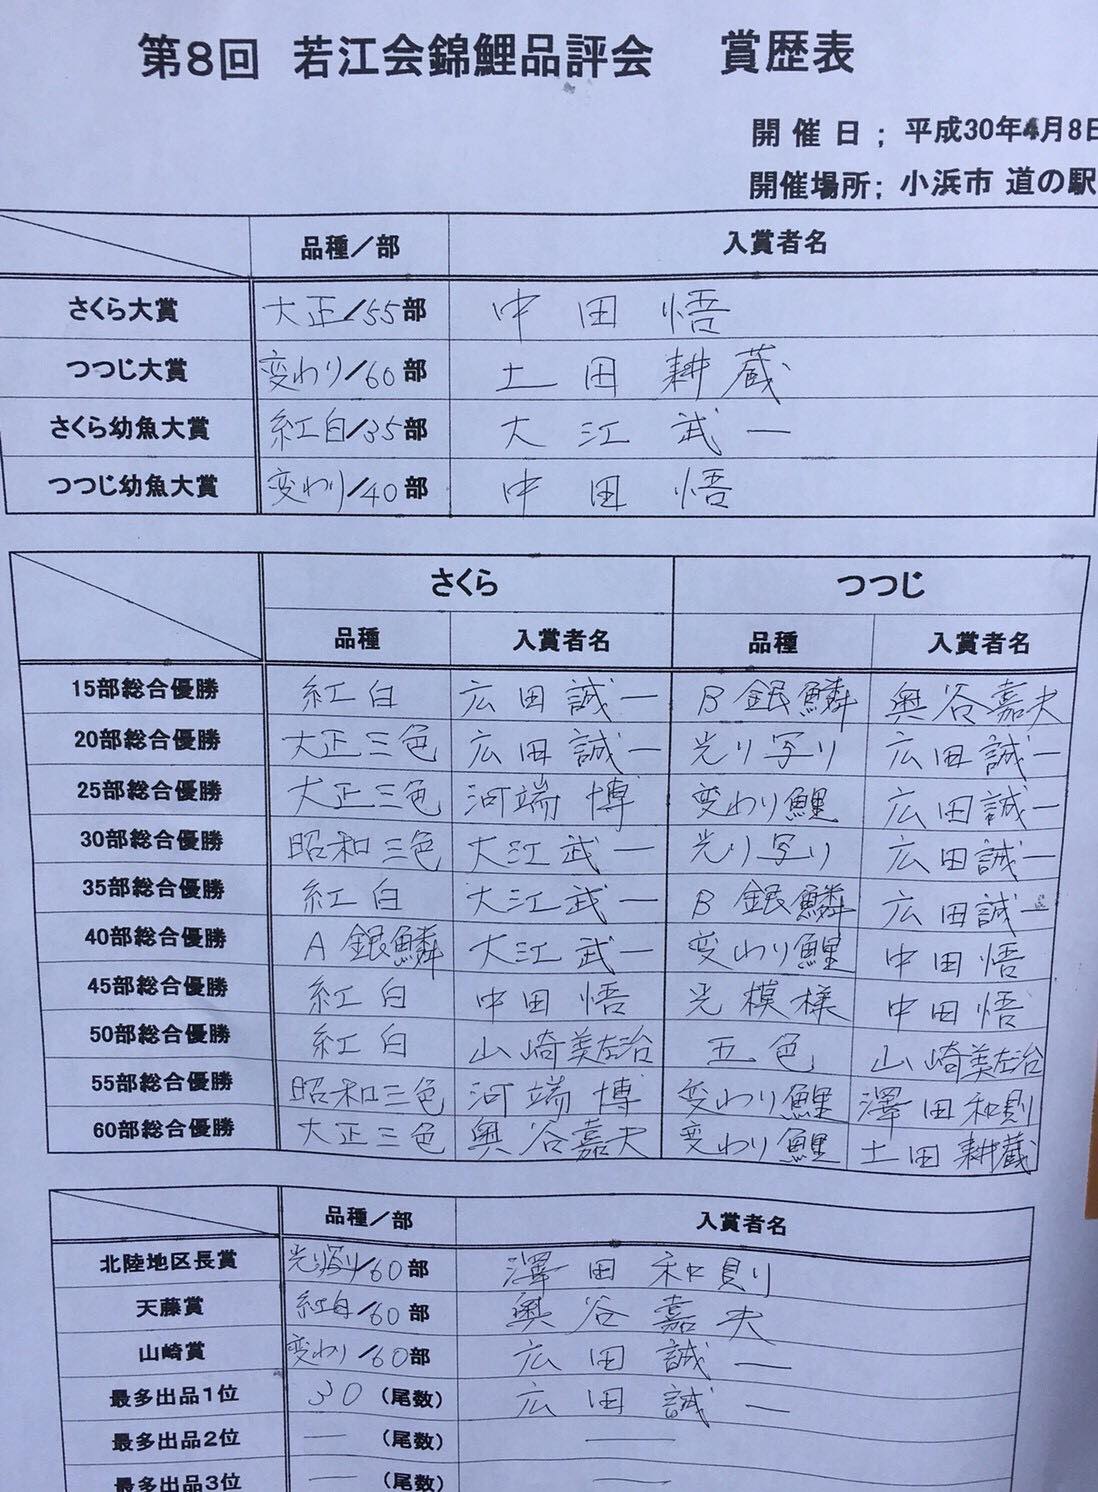 第8回 若江会錦鯉品評会 賞歴表
開催日; 平成30年4月8日
開催場所; 小浜市 道の駅
品種/部 入賞者名
さくら大賞 大正/55部 中田悟
つつじ大賞 変わり/60部 土田耕蔵
さくら幼魚大賞 紅白/35部 大江武一
つつじ幼魚大賞 変わり/40部 中田悟
さくら つつじ
品種 入賞者名 品種 入賞者名
15部総合優勝 紅白 広田誠一 B銀鱗 奥谷嘉夫
20部総合優勝 大正三色 広田誠一 光り写り 広田誠一
25部総合優勝 大正三色 河端博 変わり鯉 広田誠一
30部総合優勝 昭和三色 大江武一 光り写り 広田誠一
35部総合優勝 紅白 大江武一 B銀鱗 広田誠一
40部総合優勝 A銀鱗 大江武一 変わり鯉 中田悟
45部総合優勝 紅白 中田悟 光模様 中田悟
50部総合優勝 紅白 山崎美左治 五色 山崎美左治
55部総合優勝 昭和三色 河端博 変わり鯉 澤田和則
60部総合優勝 大正三色 奥谷嘉夫 変わり鯉 土田耕蔵
品種/部 入賞者名
北陸地区長賞 光り写り/60部 澤田和則
天藤賞 紅白/60部 奥谷嘉夫
山崎賞 変わり/60部 広田誠一
最多出品1位 30 (尾数) 広田誠一
最多出品2位 — (尾数) —
最多出品3位 — (尾数) —